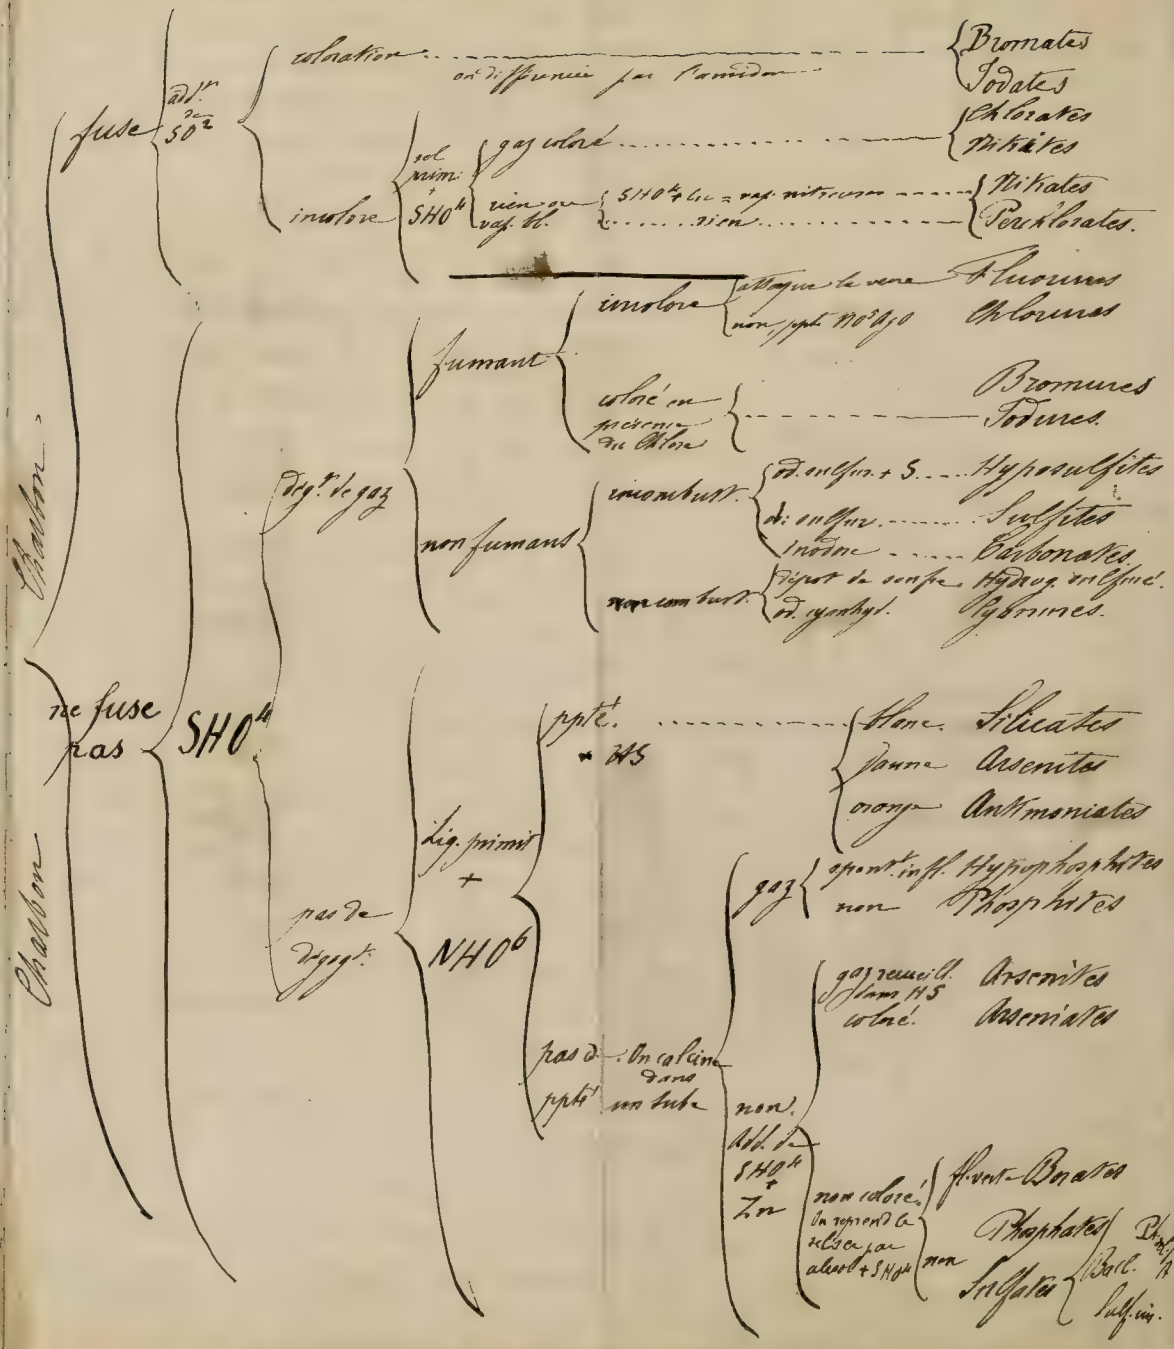 Charbon
fuse
add^on de SO²
coloration
on différencie par l'amidon
Bromates
Iodates
incolore
sel prim. + SHO⁴
gaz coloré
Chlorates
Nitrites
rien ou vap. bl.
SHO⁴ + Cu = vap. nitreuses
Nitrates
rien
Perchlorates.
Charbon
ne fuse pas
SHO⁴
dégt. de gaz
fumant
incolore
attaque le verre
Fluorures
non, ppté NO³AgO
Chlorures
coloré en présence du Chlore
Bromures
Iodures.
non fumans
incombust.
od. sulfur. + S
Hyposulfites
od. sulfur.
Sulfites
inodore
Carbonates.
combust.
dépot de soufre
Hydrog. sulfuré.
od. cyanhyd.
Cyanures.
pas de dégagt.
Liq. primit + NHO⁶
ppté.
HS
blanc. Silicates
Jaune Arsenites
orange Antimoniates
pas de ppté
On calcine dans un tube
gaz
spont^t. infl. Hypophosphites
non Phosphites
non.
Add. de SHO⁴ + Zn
gaz recueill. dans HS coloré.
Arsenites
Arseniates
non coloré.
On reprend le
par alcool + SHO⁴
fl. verte Borates
non
Phosphates
Sulfates